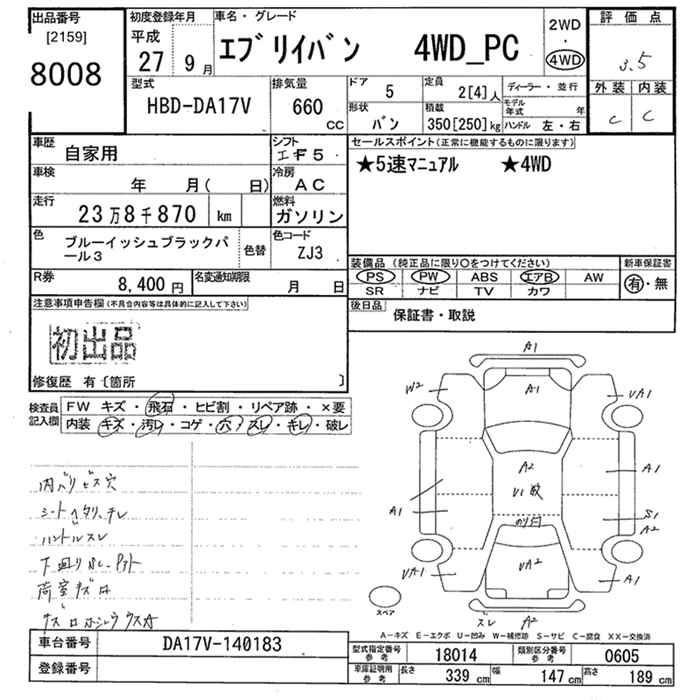 出品番号
[2159]
8008
初度登録年月
平成
27 9 月
車名・グレード
エブリイバン 4WD_PC
2WD
・
4WD
評価点
3.5
外装 内装
C C
型式
HBD-DA17V
排気量
660 CC
ドア
5
定員
2[4]人
形状
バン
積載
350[250]kg
ディーラー・並行
モデル年式 年
ハンドル 左・右
車歴
自家用
シフト
IF5
車検
年 月( 日)
冷房
AC
走行
23万8千870 km
燃料
ガソリン
色
ブルーイッシュブラックパール3
色替
色コード
ZJ3
R券
8,400円
名変通知期限
月 日
セールスポイント(正常に機能するものに限ります)
★5速マニュアル ★4WD
装備品(純正品に限り○をつけてください)
PS PW ABS エアB AW
SR ナビ TV カワ
新車保証書
有・無
後日品
保証書・取説
注意事項申告欄(不具合内容等は具体的に記入して下さい)
初出品
修復歴 有〔箇所 〕
検査員記入欄
FW キズ・飛石・ヒビ割・リペア跡・×要
内装・キズ・汚レ・コゲ・穴・スレ・キレ・破レ
内ハリビス穴
ハンドルスレ
荷室キズ
A1
W2
A1
VA1
A2
A1
A1
S1
A2
VA1
VA2
A1
スレ A2
スペア
A-キズ E-エクボ U-凹み W-補修跡 S-サビ C-腐食 XX-交換済
車台番号
DA17V-140183
登録番号
型式指定番号参考
18014
類別区分番号参考
0605
車庫証明用参考
長さ 339 cm 幅 147 cm 高さ 189 cm